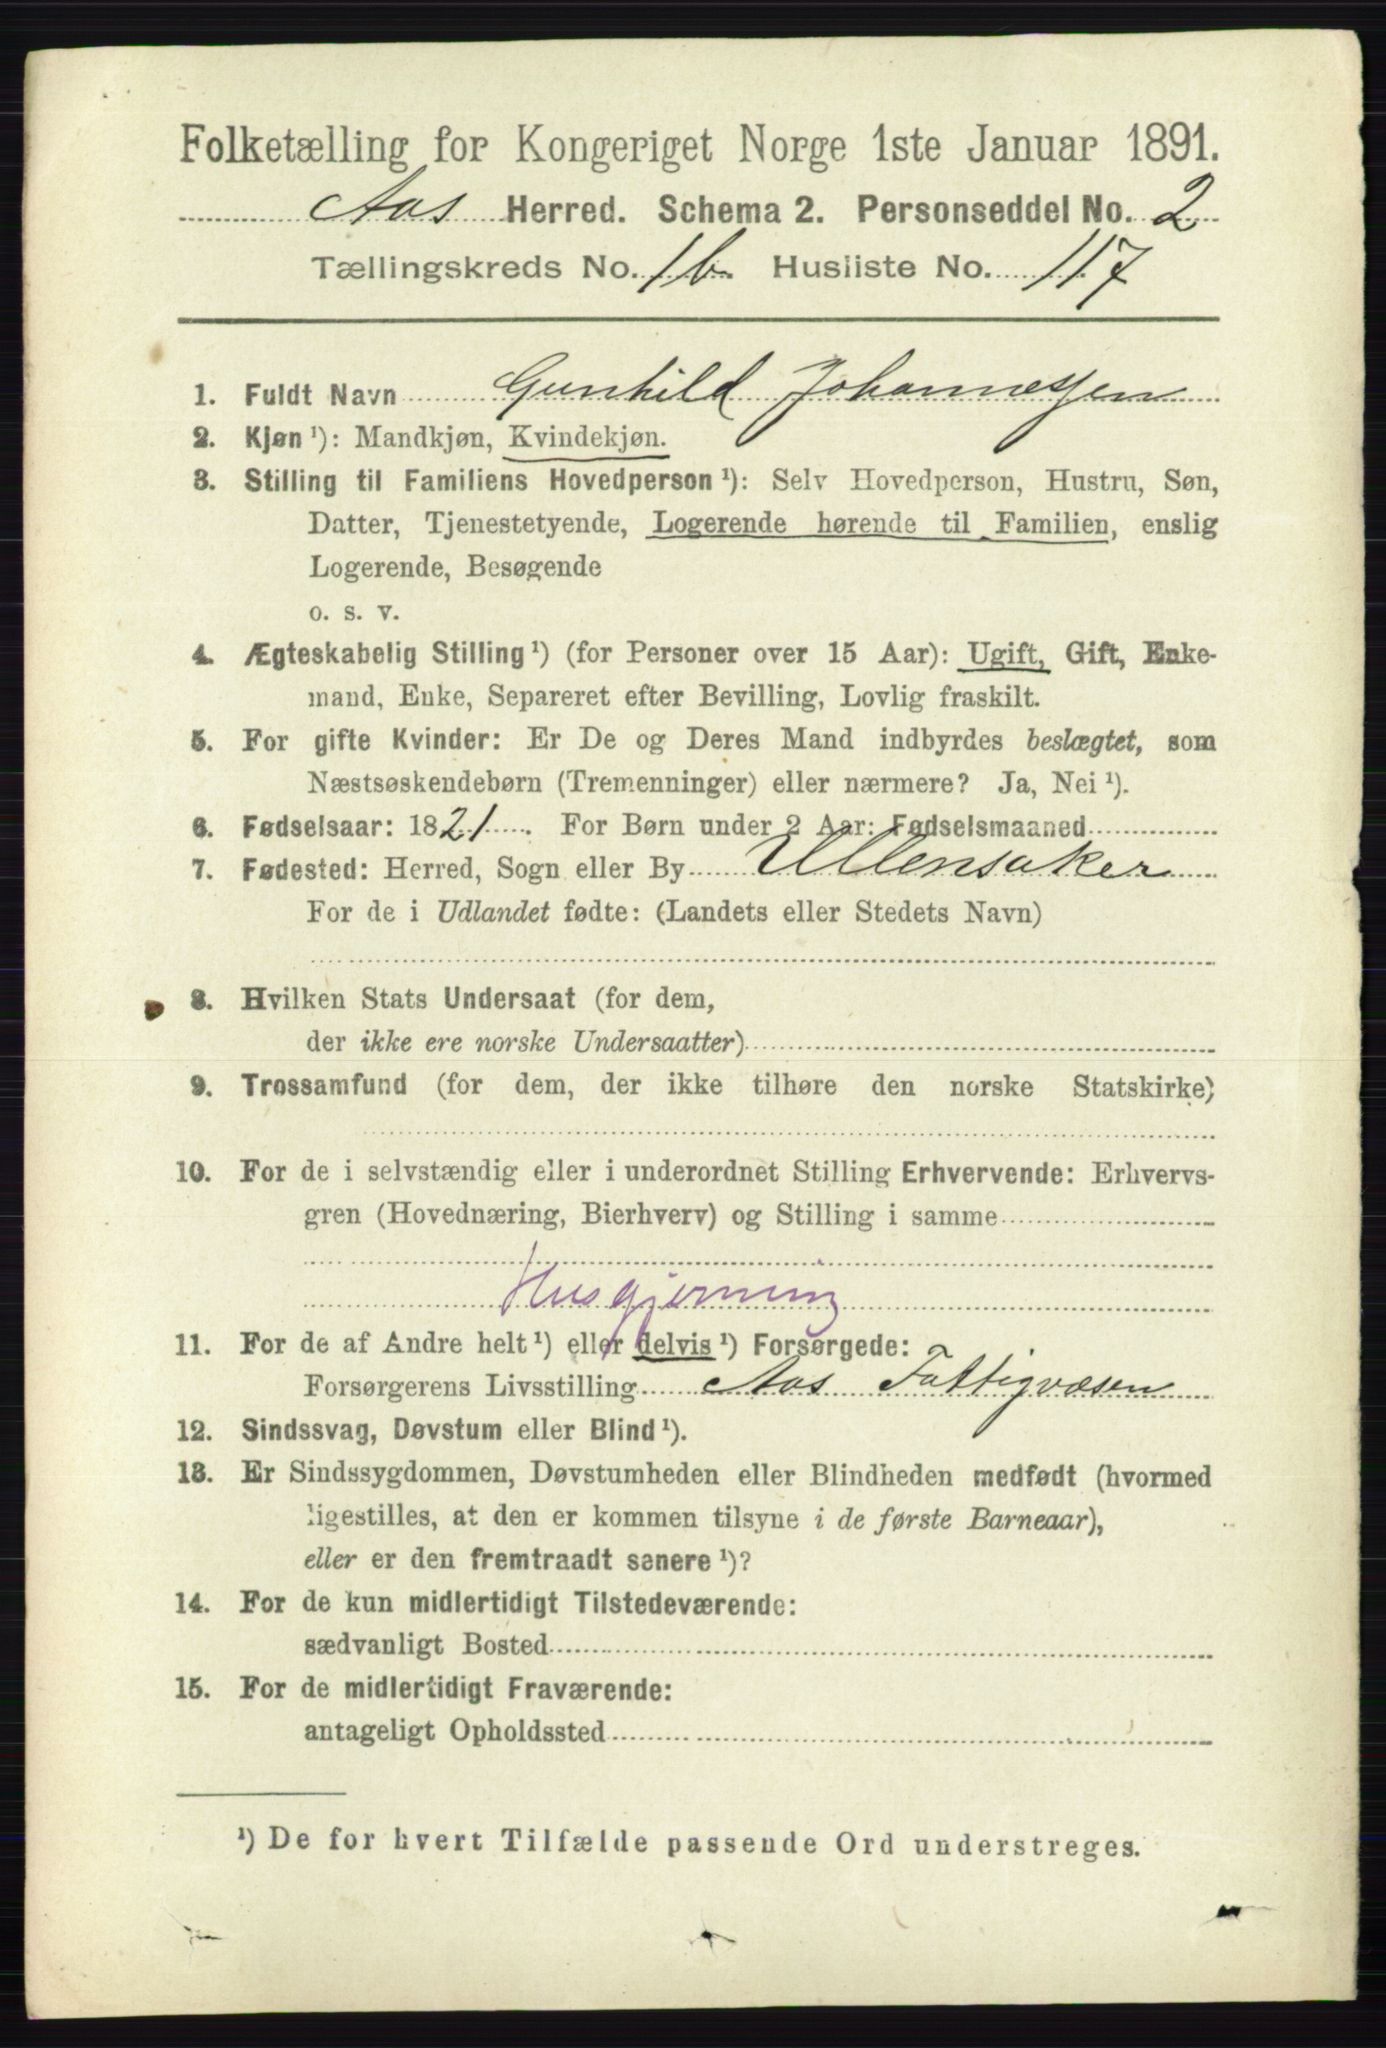 Folketælling for Kongeriget Norge 1ste Januar 1891.
Aas Herred. Schema 2. Personseddel No. 2
Tællingskreds No. 1b. Husliste No. 117
1. Fuldt Navn Gunhild Johannessen
2. Kjøn ¹): Mandkjøn, Kvindekjøn.
3. Stilling til Familiens Hovedperson ¹): Selv Hovedperson, Hustru, Søn,
Datter, Tjenestetyende, Logerende hørende til Familien, enslig
Logerende, Besøgende
o. s. v.
4. Ægteskabelig Stilling ¹) (for Personer over 15 Aar): Ugift, Gift, Enke-
mand, Enke, Separeret efter Bevilling, Lovlig fraskilt.
5. For gifte Kvinder: Er De og Deres Mand indbyrdes beslægtet, som
Næstsøskendebørn (Tremenninger) eller nærmere? Ja, Nei ¹).
6. Fødselsaar: 1821. For Børn under 2 Aar: Fødselsmaaned
7. Fødested: Herred, Sogn eller By Ullensaker
For de i Udlandet fødte: (Landets eller Stedets Navn)
8. Hvilken Stats Undersaat (for dem,
der ikke ere norske Undersaatter)
9. Trossamfund (for dem, der ikke tilhøre den norske Statskirke)
10. For de i selvstændig eller i underordnet Stilling Erhvervende: Erhvervs-
gren (Hovednæring, Bierhverv) og Stilling i samme
Husgjerning
11. For de af Andre helt ¹) eller delvis ¹) Forsørgede:
Forsørgerens Livsstilling Aas Fattigvæsen
12. Sindssvag, Døvstum eller Blind ¹).
13. Er Sindssygdommen, Døvstumheden eller Blindheden medfødt (hvormed
ligestilles, at den er kommen tilsyne i de første Barneaar),
eller er den fremtraadt senere ¹)?
14. For de kun midlertidigt Tilstedeværende:
sædvanligt Bosted
15. For de midlertidigt Fraværende:
antageligt Opholdssted
¹) De for hvert Tilfælde passende Ord understreges.